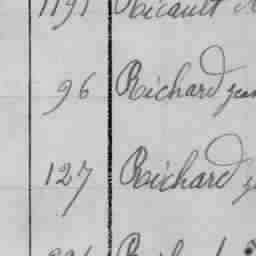 1191 Ricault
96 Richard Jean
127 Richard